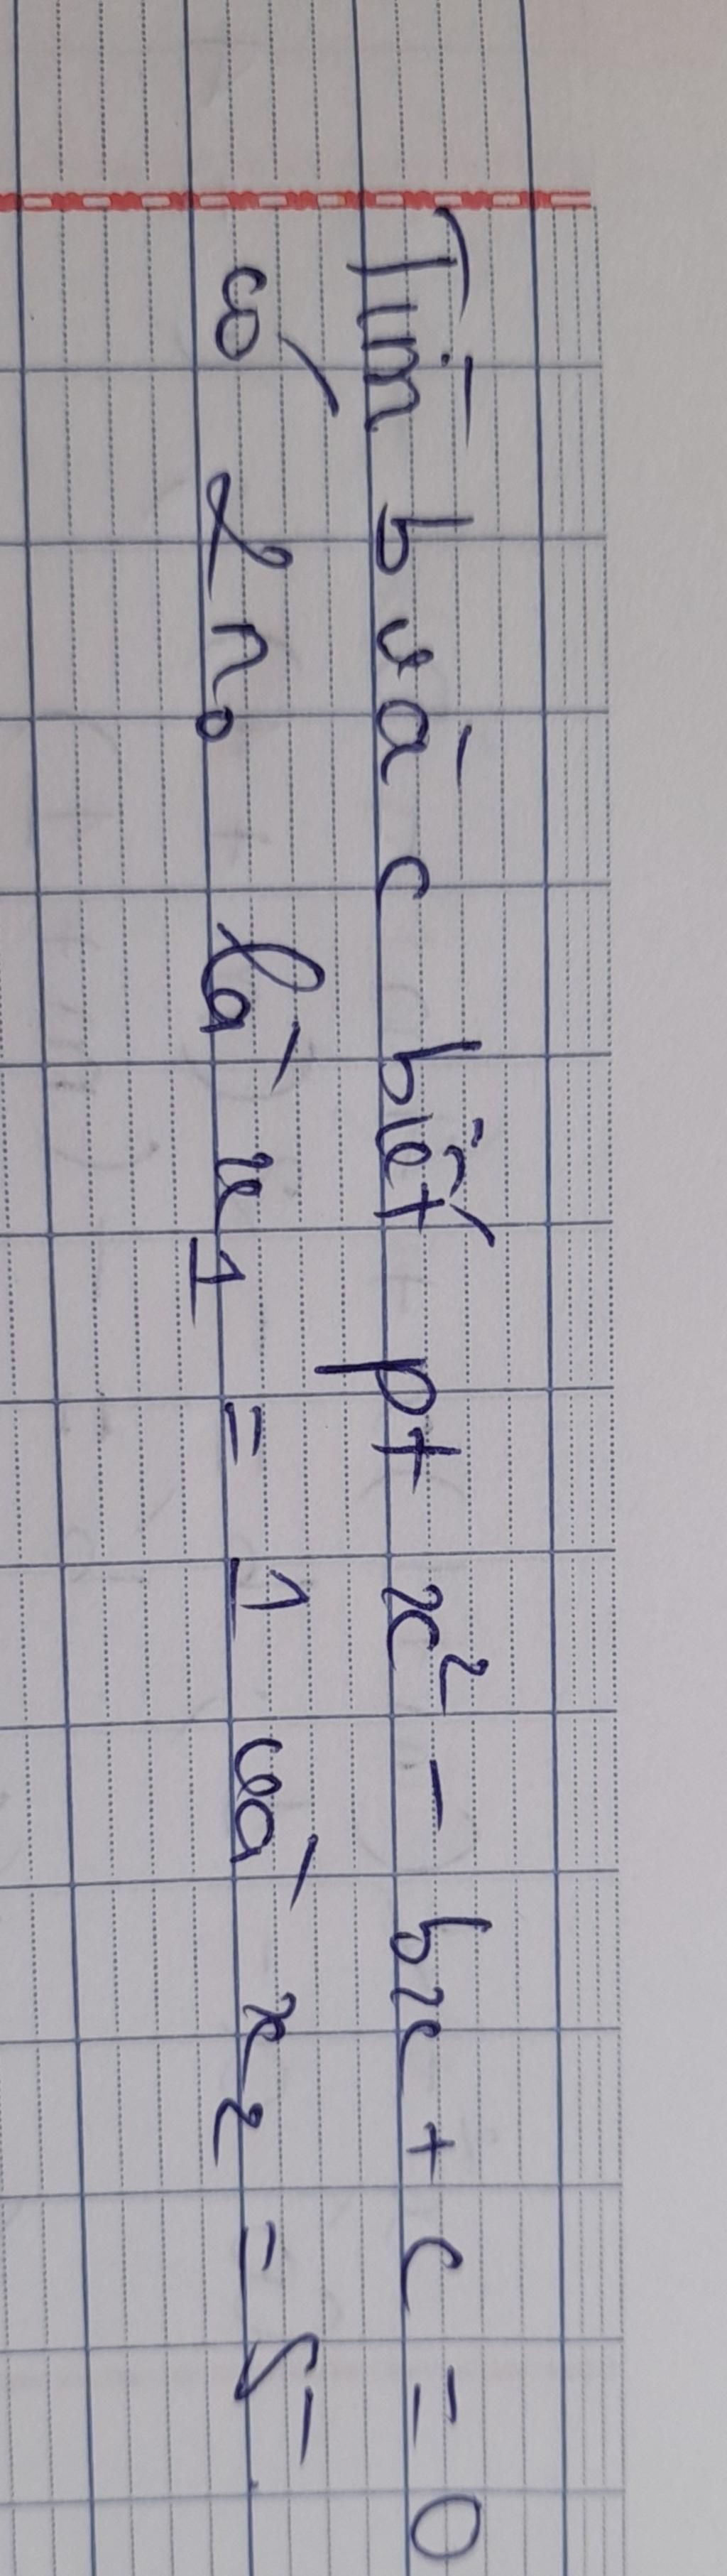 Tìm b và c biết pt x² - bx + c = 0
có 2 no là x₁ = 1 và x₂ = 5